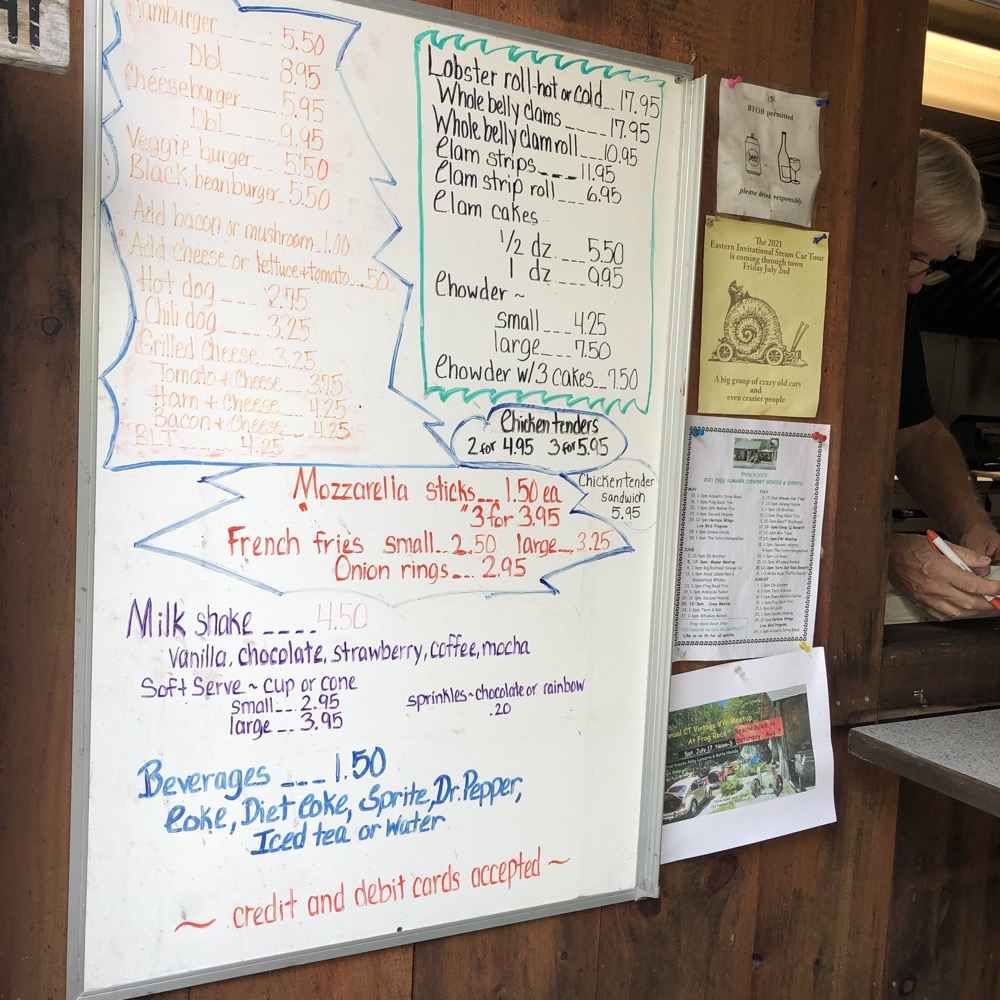 Hamburger ---- 5.50
Dbl ---- 8.95
Cheeseburger --- 5.95
Dbl ---- 9.95
Veggie burger -- 5.50
Black bean burger -- 5.50
Add bacon or mushroom - 1.00
Add cheese or lettuce+tomato .50
Hot dog ---- 2.75
Chili dog --- 3.25
Grilled Cheese -- 3.25
Tomato + Cheese -- 3.75
Ham + Cheese -- 4.25
Bacon + Cheese -- 4.25
BLT ---- 4.25
Lobster roll-hot or cold -- 17.95
Whole belly clams ---- 17.95
Whole belly clam roll --- 10.95
Clam strips --- 11.95
Clam strip roll --- 6.95
Clam cakes
1/2 dz. -- 5.50
1 dz. -- 9.95
Chowder ~
small -- 4.25
large --- 7.50
Chowder w/3 cakes -- 7.50
Chicken tenders
2 for 4.95 3 for 5.95
Chicken tender
sandwich
5.95
Mozzarella sticks -- 1.50 ea
3 for 3.95
French fries small -- 2.50 large -- 3.25
Onion rings --- 2.95
Milk shake ---- 4.50
Vanilla, chocolate, strawberry, coffee, mocha
Soft Serve ~ cup or cone
small --- 2.95
large --- 3.95
sprinkles ~ chocolate or rainbow
.20
Beverages --- 1.50
Coke, Diet Coke, Sprite, Dr. Pepper,
Iced tea or Water
~ credit and debit cards accepted ~
BYOB permitted
please drink responsibly
The 2021
Eastern Invitational Steam Car Tour
is coming through town
Friday July 2nd
A big group of crazy old cars
and
even crazier people
2021 FREE SUMMER CONCERT SERIES & EVENTS
MAY
JULY
JUNE
AUGUST
CT Vintage VW Meetup
At Frog Rock
Rescheduled to
Saturday Aug 7
Sat. July 17 Noon-3